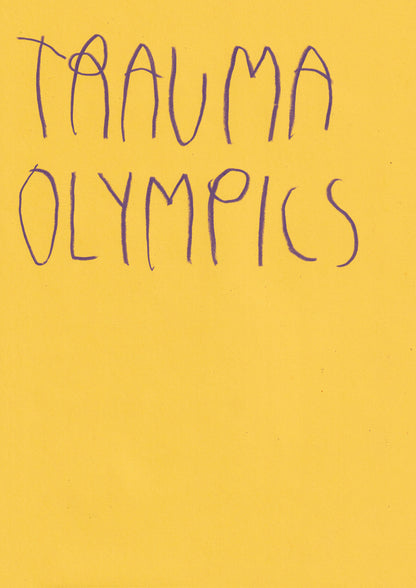 TRAUMA
OLYMPICS